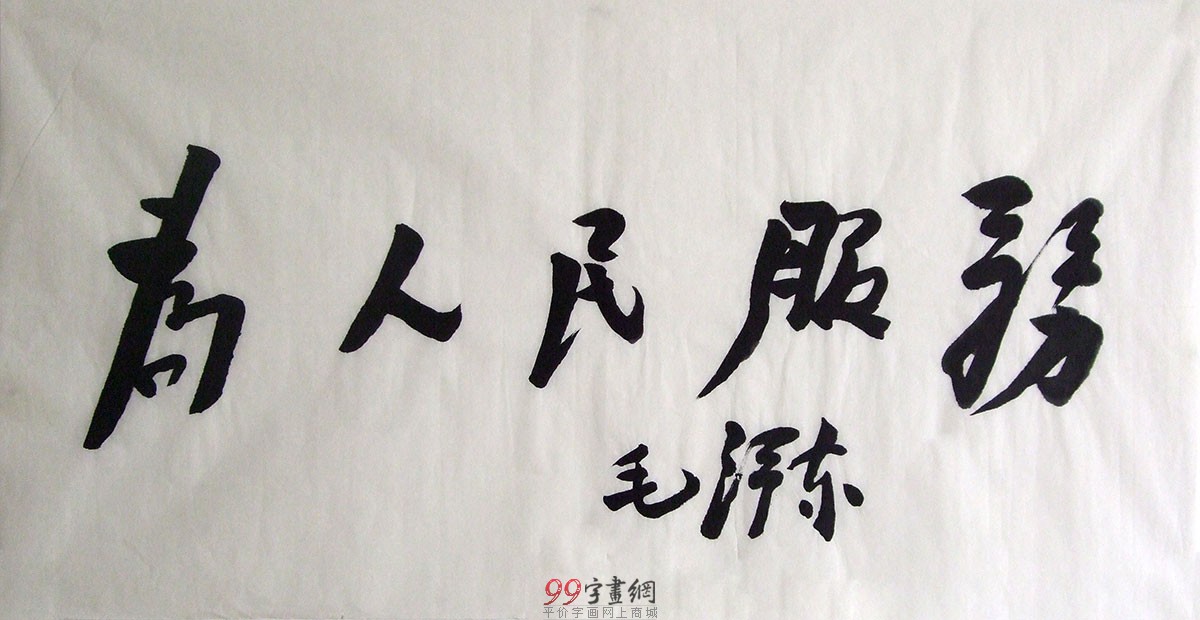 为人民服務
毛泽东
99字畫網
平价字画网上商城